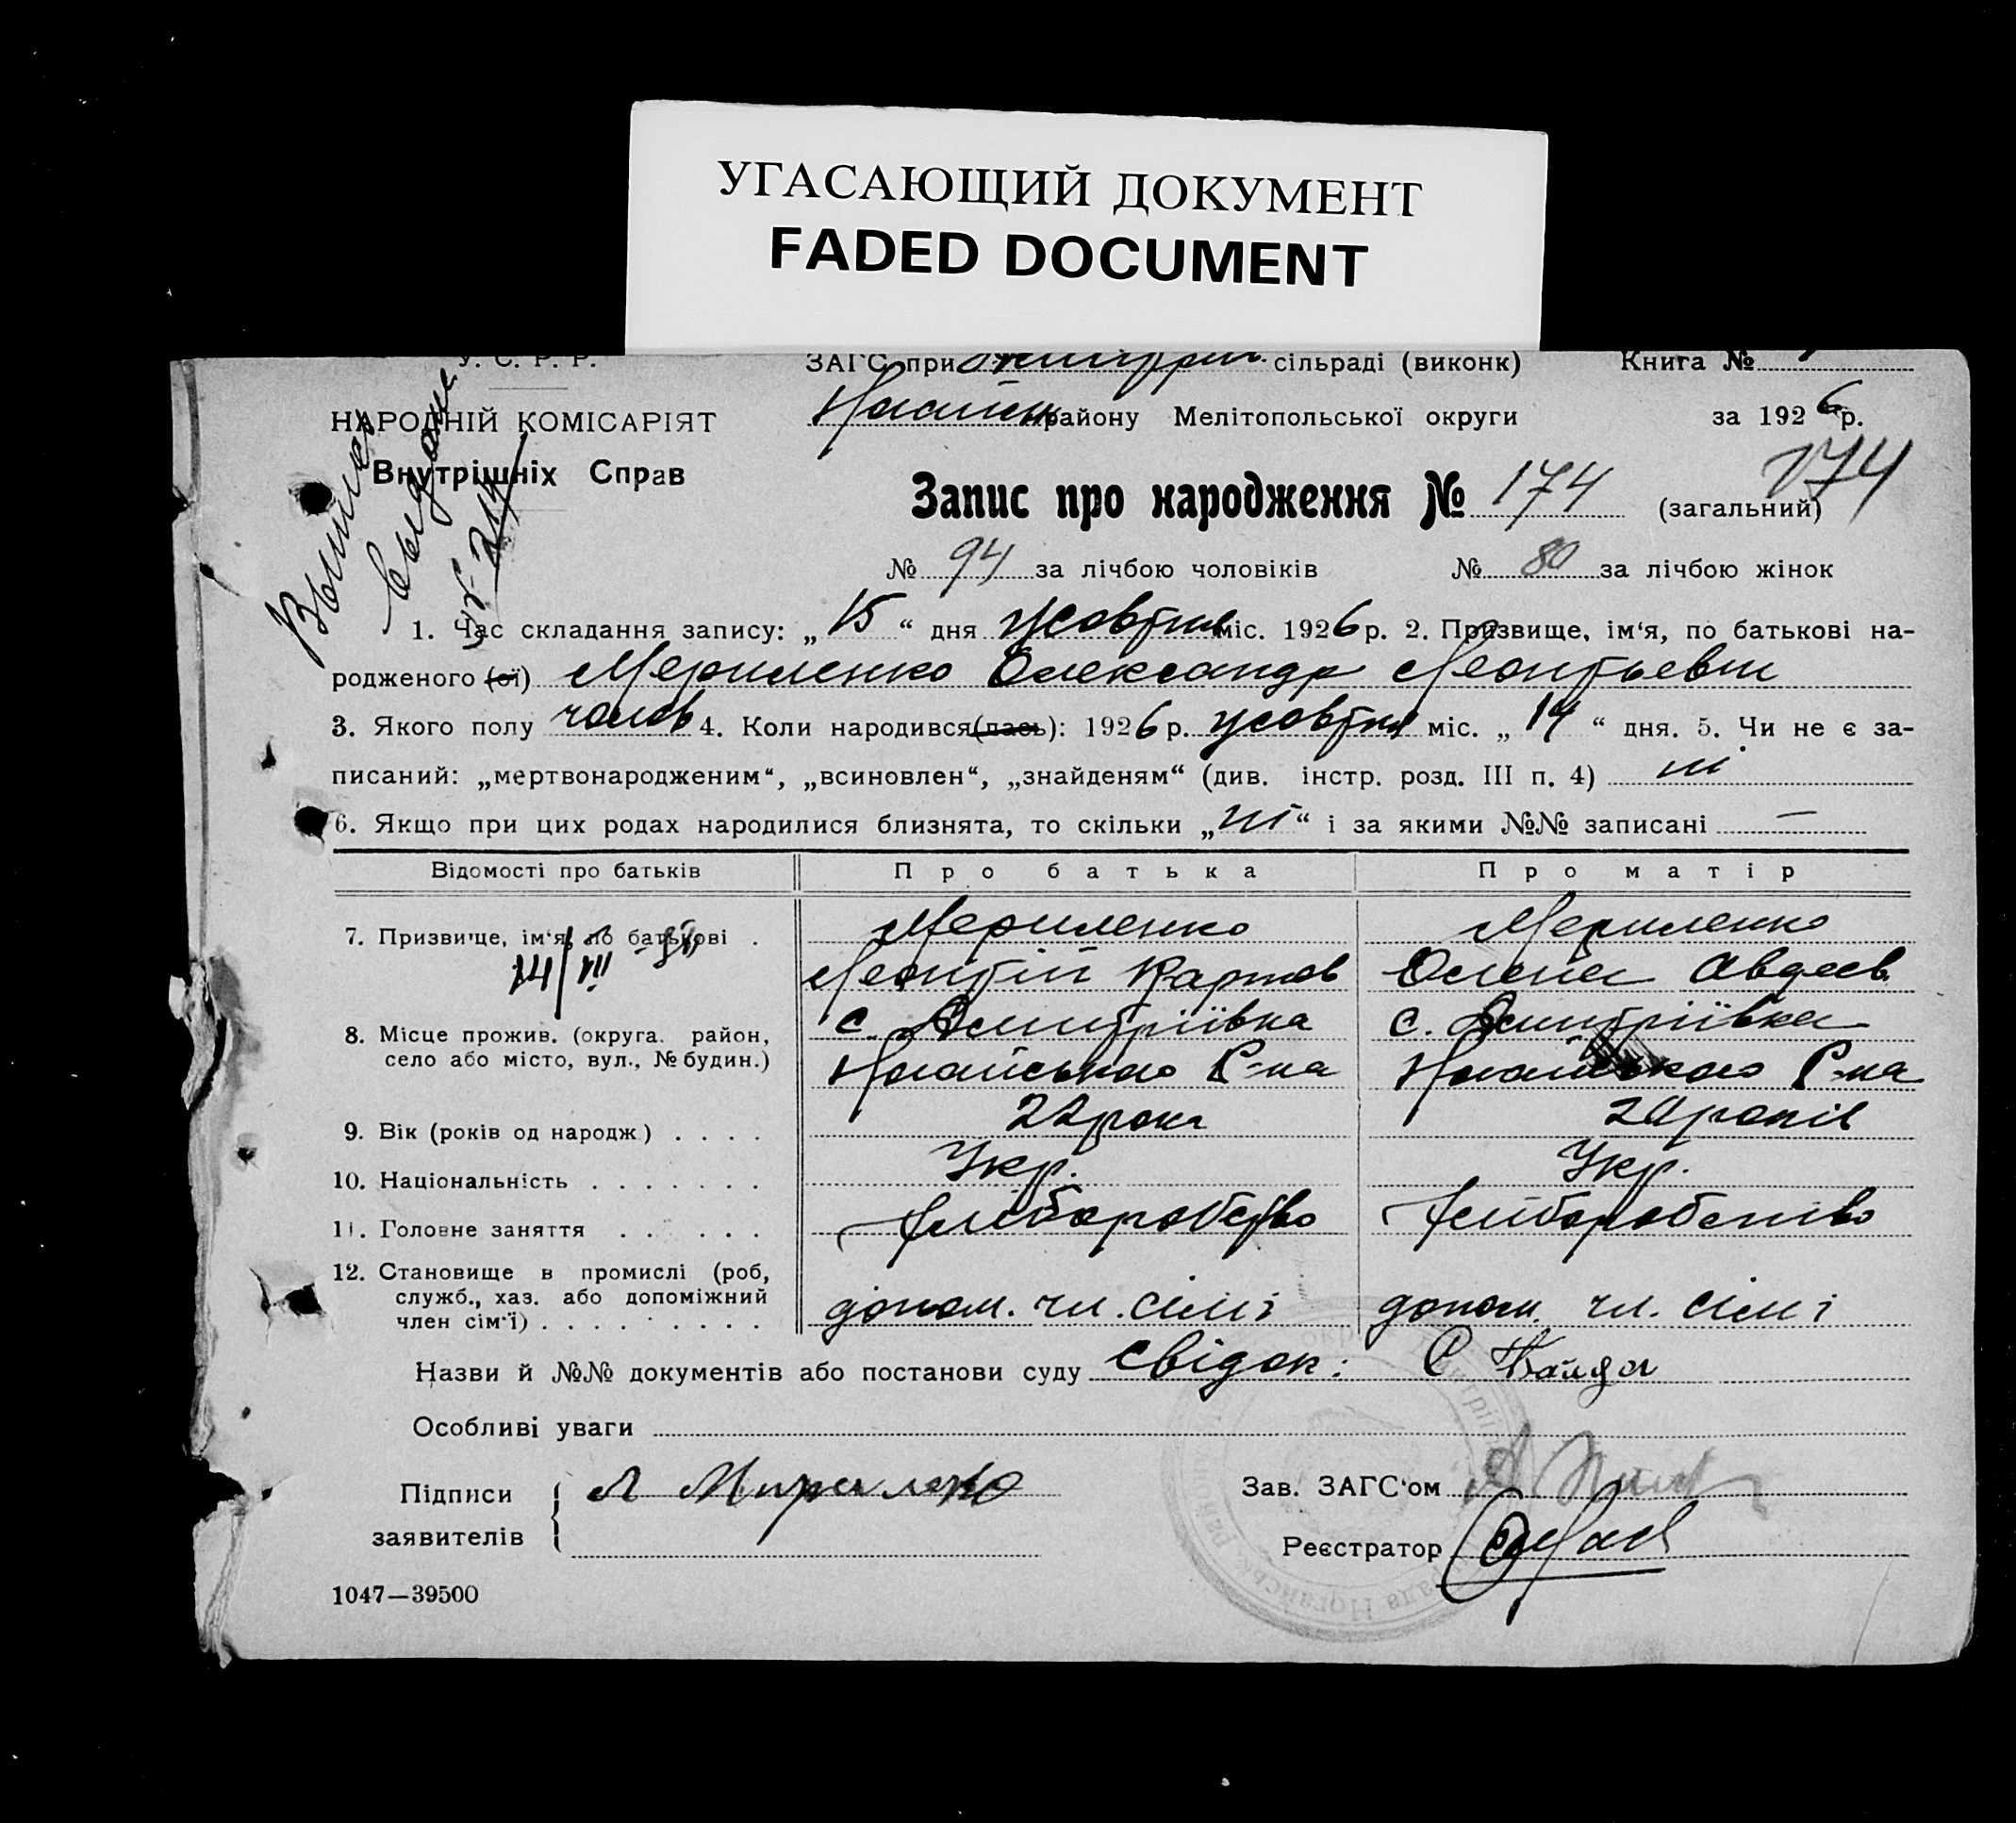 УГАСАЮЩИЙ ДОКУМЕНТ
FADED DOCUMENT
У. С. Р. Р.
ЗАГС при сільраді (виконк) Книга №
НАРОДНІЙ КОМІСАРІЯТ
району Мелітопольської округи за 1926 р.
Внутрішніх Справ
174
Запис про народження № 174 (загальний)
№ 94 за лічбою чоловіків № 80 за лічбою жінок
1. Час складання запису: „15“ дня Жовтня міс. 1926 р. 2. Призвище, ім‘я, по батькові на-
родженого (ої) Мериленко Олександр Леонтьевич
3. Якого полу чолов 4. Коли народився(лась): 1926 р. жовтня міс. „14“ дня. 5. Чи не є за-
писаний: „мертвонародженим“, „всиновлен“, „знайденям“ (див. інстр. розд. III п. 4) ні
6. Якщо при цих родах народилися близнята, то скільки „ні“ і за якими №№ записані —
Відомості про батьків Про батька Про матір
7. Призвище, ім‘я, по батькові . Мериленко Мериленко
Леонтій Карпов Олена Авдеев.
8. Місце прожив. (округа. район, с. Дмитріївка с. Дмитріївка
село або місто, вул., № будин.) Ногайського Р-на Ногайського Р-на
9. Вік (років од народж.) . . . . 22 рока 20 років
10. Національність . . . . . . . Укр. Укр.
11. Головне заняття . . . . . . Хліборобство Хліборобство
12. Становище в промислі (роб,
служб., хаз. або допоміжний
член сім‘ї) . . . . . . . . . допом. чл. сімї допом. чл. сімї
Назви й №№ документів або постанови суду свідок: С Байда
Особливі уваги
Підписи Л Мириленко Зав. ЗАГС‘ом
заявителів Реєстратор
1047—39500